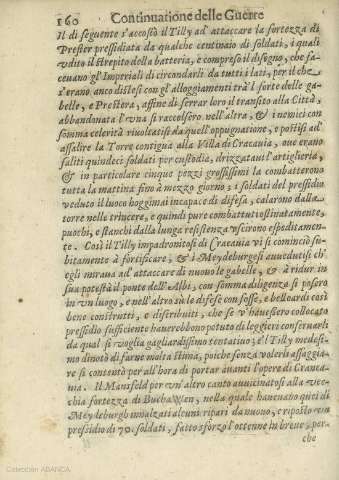 160 Continuatione delle Guerre
il dì seguente s'accostò il Tilly ad' attaccare la fortezza di
Prester pressidiata da qualche centinaio di soldati, i quali
vdito il strepito della batteria, e compreso il disegno, che fa-
ceuano gl'Imperiali di circondarli da tutti i lati, per il che
s'erano anco distesi con gl'alloggiamenti trà'l forte delle ga-
belle, e Prestera, affine di serrar loro il transito alla Città,
abbandonata l'vna si raccolsero nell'altra, & i nemici con
somma celerità riuoltatisi da quell'oppugnatione, e postisi ad'
assalire la Torre contigua alla Villa di Cracauia, oue erano
saliti quindeci soldati per custodia, drizzataui l'artiglieria,
& in particolare cinque pezzi grossissimi la combatterono
tutta la mattina fino à mezzo giorno; i soldati del pressidio
veduto il luoco hoggimai incapace di difesa, calarono dalla
torre nelle trincere, e quindi pure combattuti ostinatamente,
puochi, e stanchi dalla lunga resistenza vscirono espeditamen-
te. Così il Tilly impadronitosi di Cracauia vi si cominciò su-
bitamente à fortificare, & i Meydeburgesi auuedutisi ch'
egli miraua ad'attaccar di nuouo le gabelle, & à ridur in
sua potestà il ponte dell'Albi, con somma diligenza si posero
in vn luogo, e nell'altro sù le difese con fosse, e belloardi così
bene construtti, e distribuiti, che se v'hauessero collocato
pressidio sufficiente hauerebbono potuto di leggieri conseruarli
da qual si voglia gagliardissimo tentatiuo; e'l Tilly medesi-
mo dinotò di farne molta stima, poiche senza volerli assaggia-
re si contentò per all'hora di portar auanti l'opere di Cracau-
uia. Il Mansfeld per vn'altro canto auuicinatosi alla vec-
chia fortezza di Buchavven, nella quale haueuano quei di
Meydeburgh innalzati alcuni ripari da nuouo, e riposto vn
pressidio di 70. soldati, fatto sforzo l'ottenne in breue, per-
che
Colección ABANCA